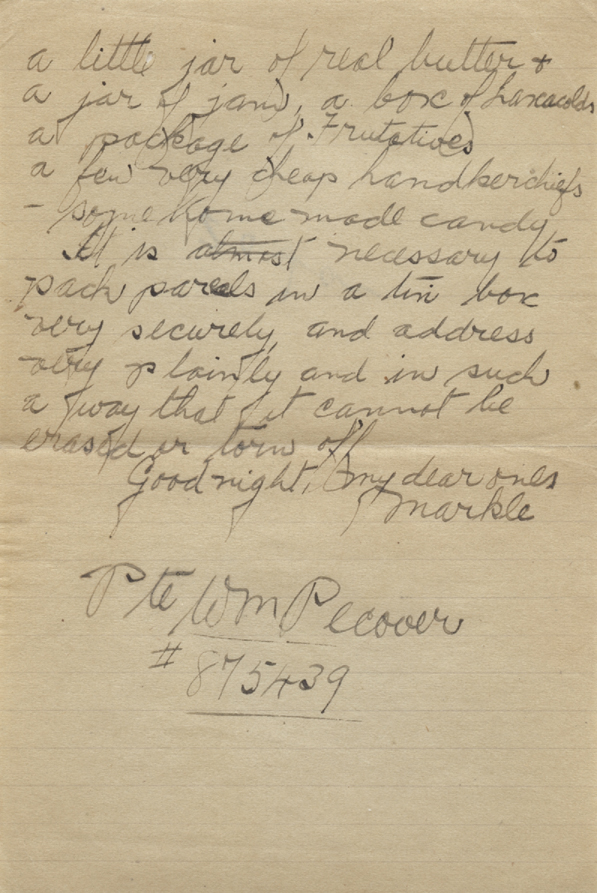 a little jar of real butter +
a jar of jam, a box of Laxacolds
a package of Frutatives
a few very cheap handkerchiefs
- some home made candy
It is almost necessary to
pack parcels in a tin box
very securely and address
very plainly and in such
a way that it cannot be
erased or torn off
Good night, my dear ones
Markle
Pte Wm Pecover
# 875439